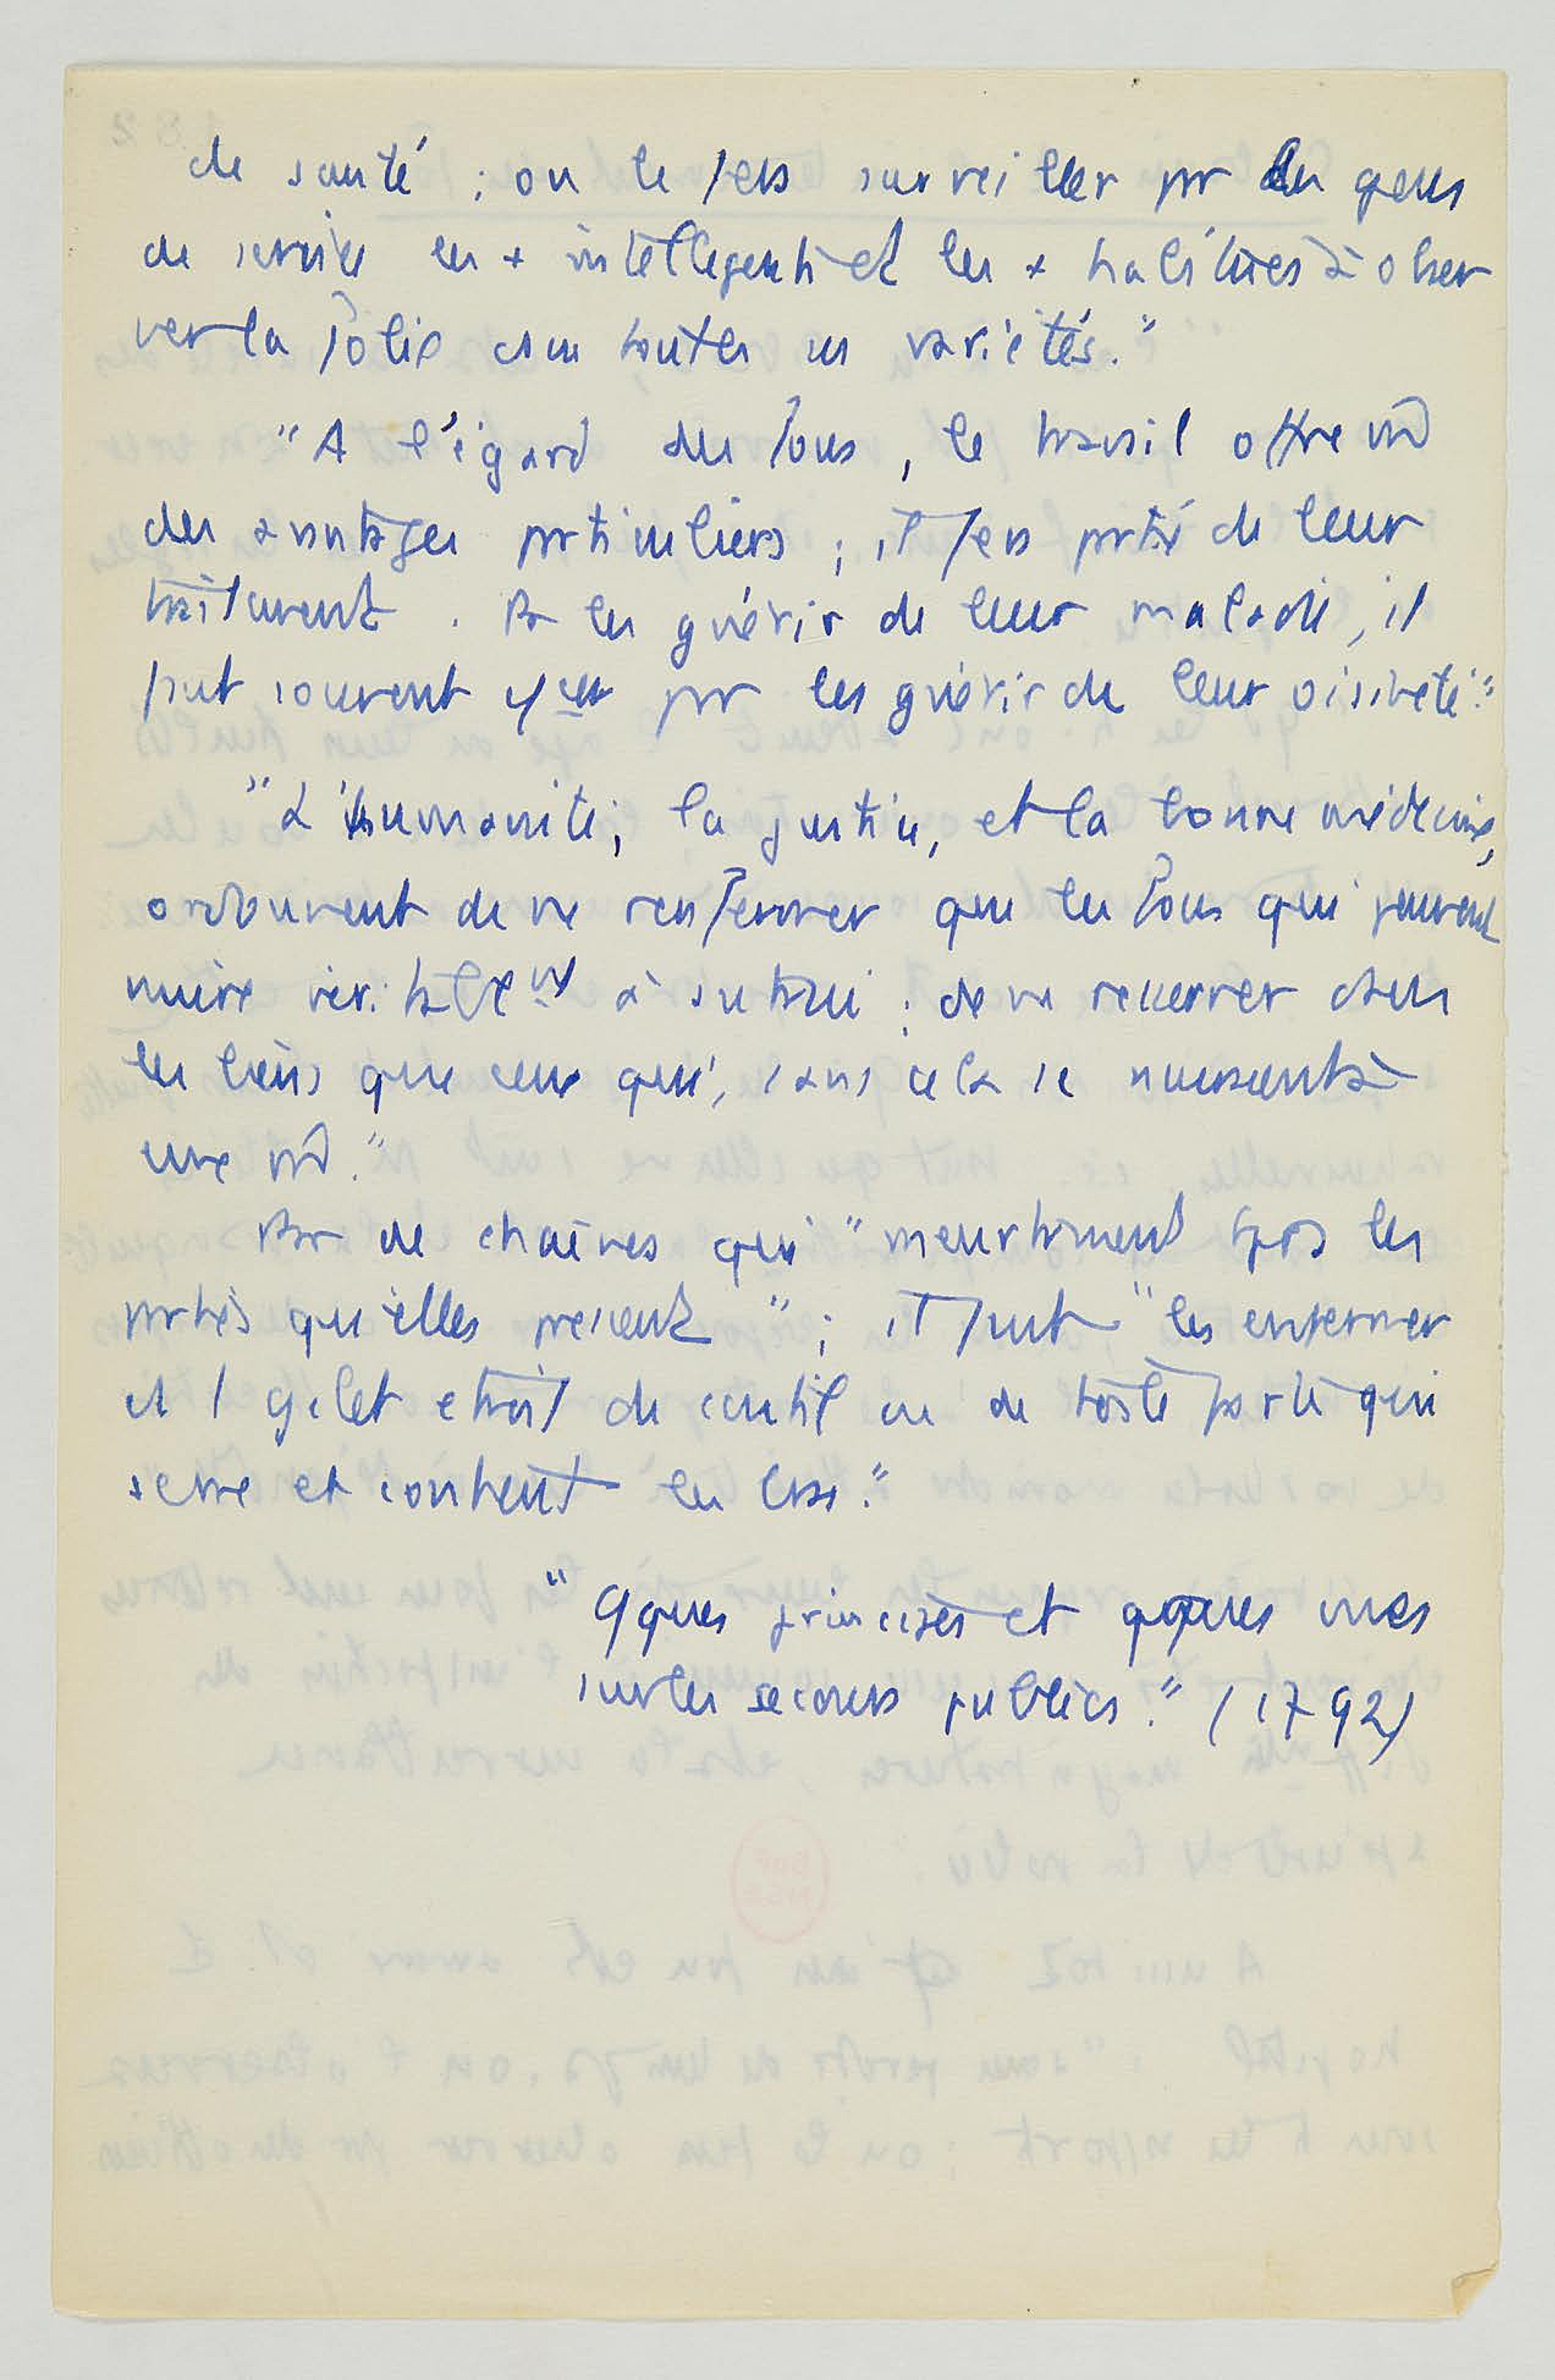 de santé ; on le fera surveiller par des gens
de service les + intelligents et les + habitués à obser
ver la folie dans toutes ses variétés."
"A l'égard des fous, le travail offre
des avantages particuliers ; il fera partie de leur
traitement. Pr les guérir de leur maladie, il
faut souvent par les guérir de leur oisiveté."
"L'humanité, la justice, et la bonne médecine,
ordonnent de ne renfermer que les fous qui peuvent
nuire véritablemt à autrui ; de ne resserrer dans
les liens que ceux qui, sans cela se nuiraient à
"
Pas de chaînes qui "meurtrissent les
parties qu'elles pressent" ; il faut "les enfermer
ds 1 gilet étroit de coutil ou de toile forte qui
serre et contient les bras."
"Qques principes et qques vues
sur les secours publics." (1792)